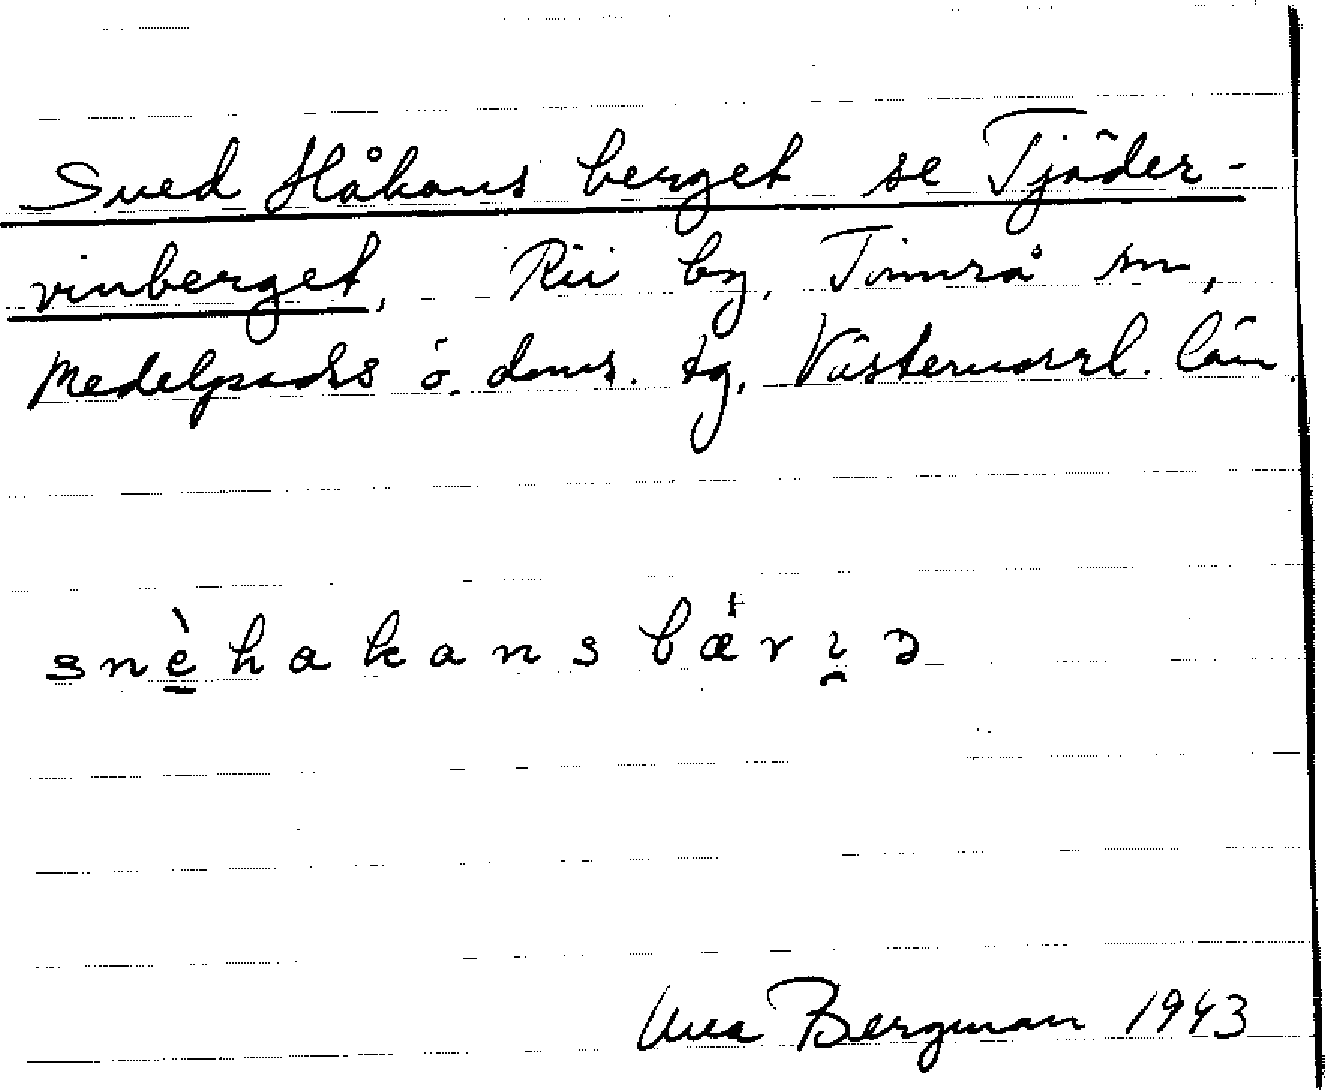 Sved Håkans berget se Tjäder-
vinberget, Rii by, Timrå sn,
Medelpads ö. doms. tg, Västernorrl. län.
snèhakansbærıə
Bergman 1943